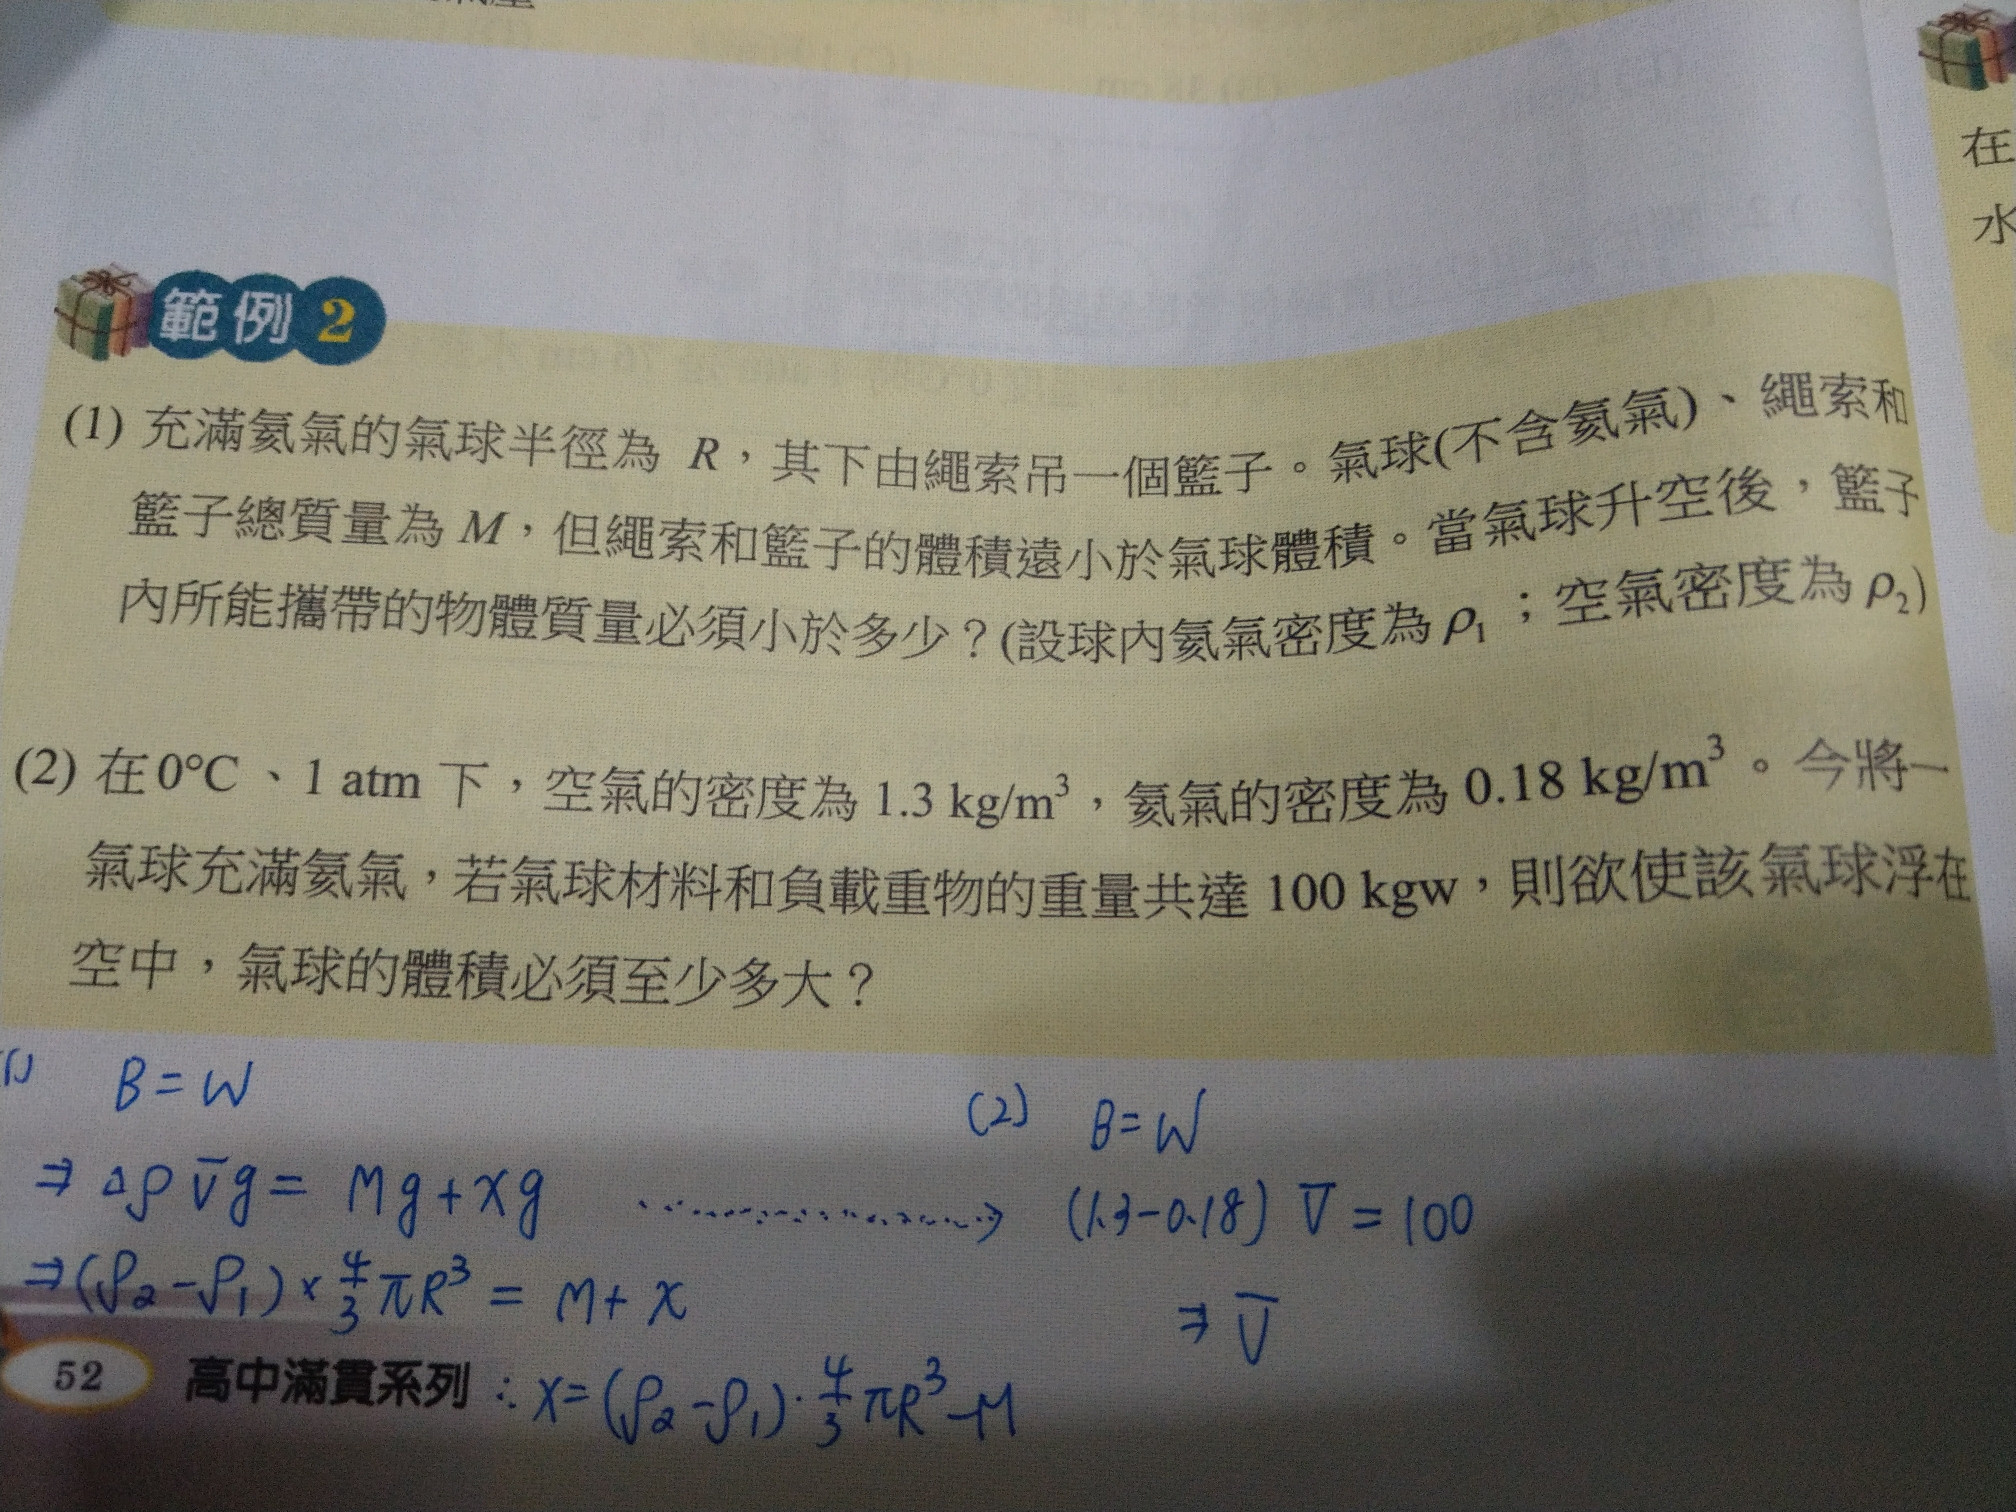 範例 2
(1) 充滿氦氣的氣球半徑為 R，其下由繩索吊一個籃子。氣球(不含氦氣)、繩索和
籃子總質量為 M，但繩索和籃子的體積遠小於氣球體積。當氣球升空後，籃子
內所能攜帶的物體質量必須小於多少？(設球內氦氣密度為 ρ₁；空氣密度為 ρ₂)
(2) 在 0°C、1 atm 下，空氣的密度為 1.3 kg/m³，氦氣的密度為 0.18 kg/m³。今將一
氣球充滿氦氣，若氣球材料和負載重物的重量共達 100 kgw，則欲使該氣球浮在
空中，氣球的體積必須至少多大？
(1) B = W
⇒ Δρ V g = Mg + xg
⇒ (ρ₂ - ρ₁) × 4/3 πR³ = M + x
∴ x = (ρ₂ - ρ₁) · 4/3 πR³ - M
(2) B = W
(1.3 - 0.18) V = 100
⇒ V
52 高中滿貫系列
在
水